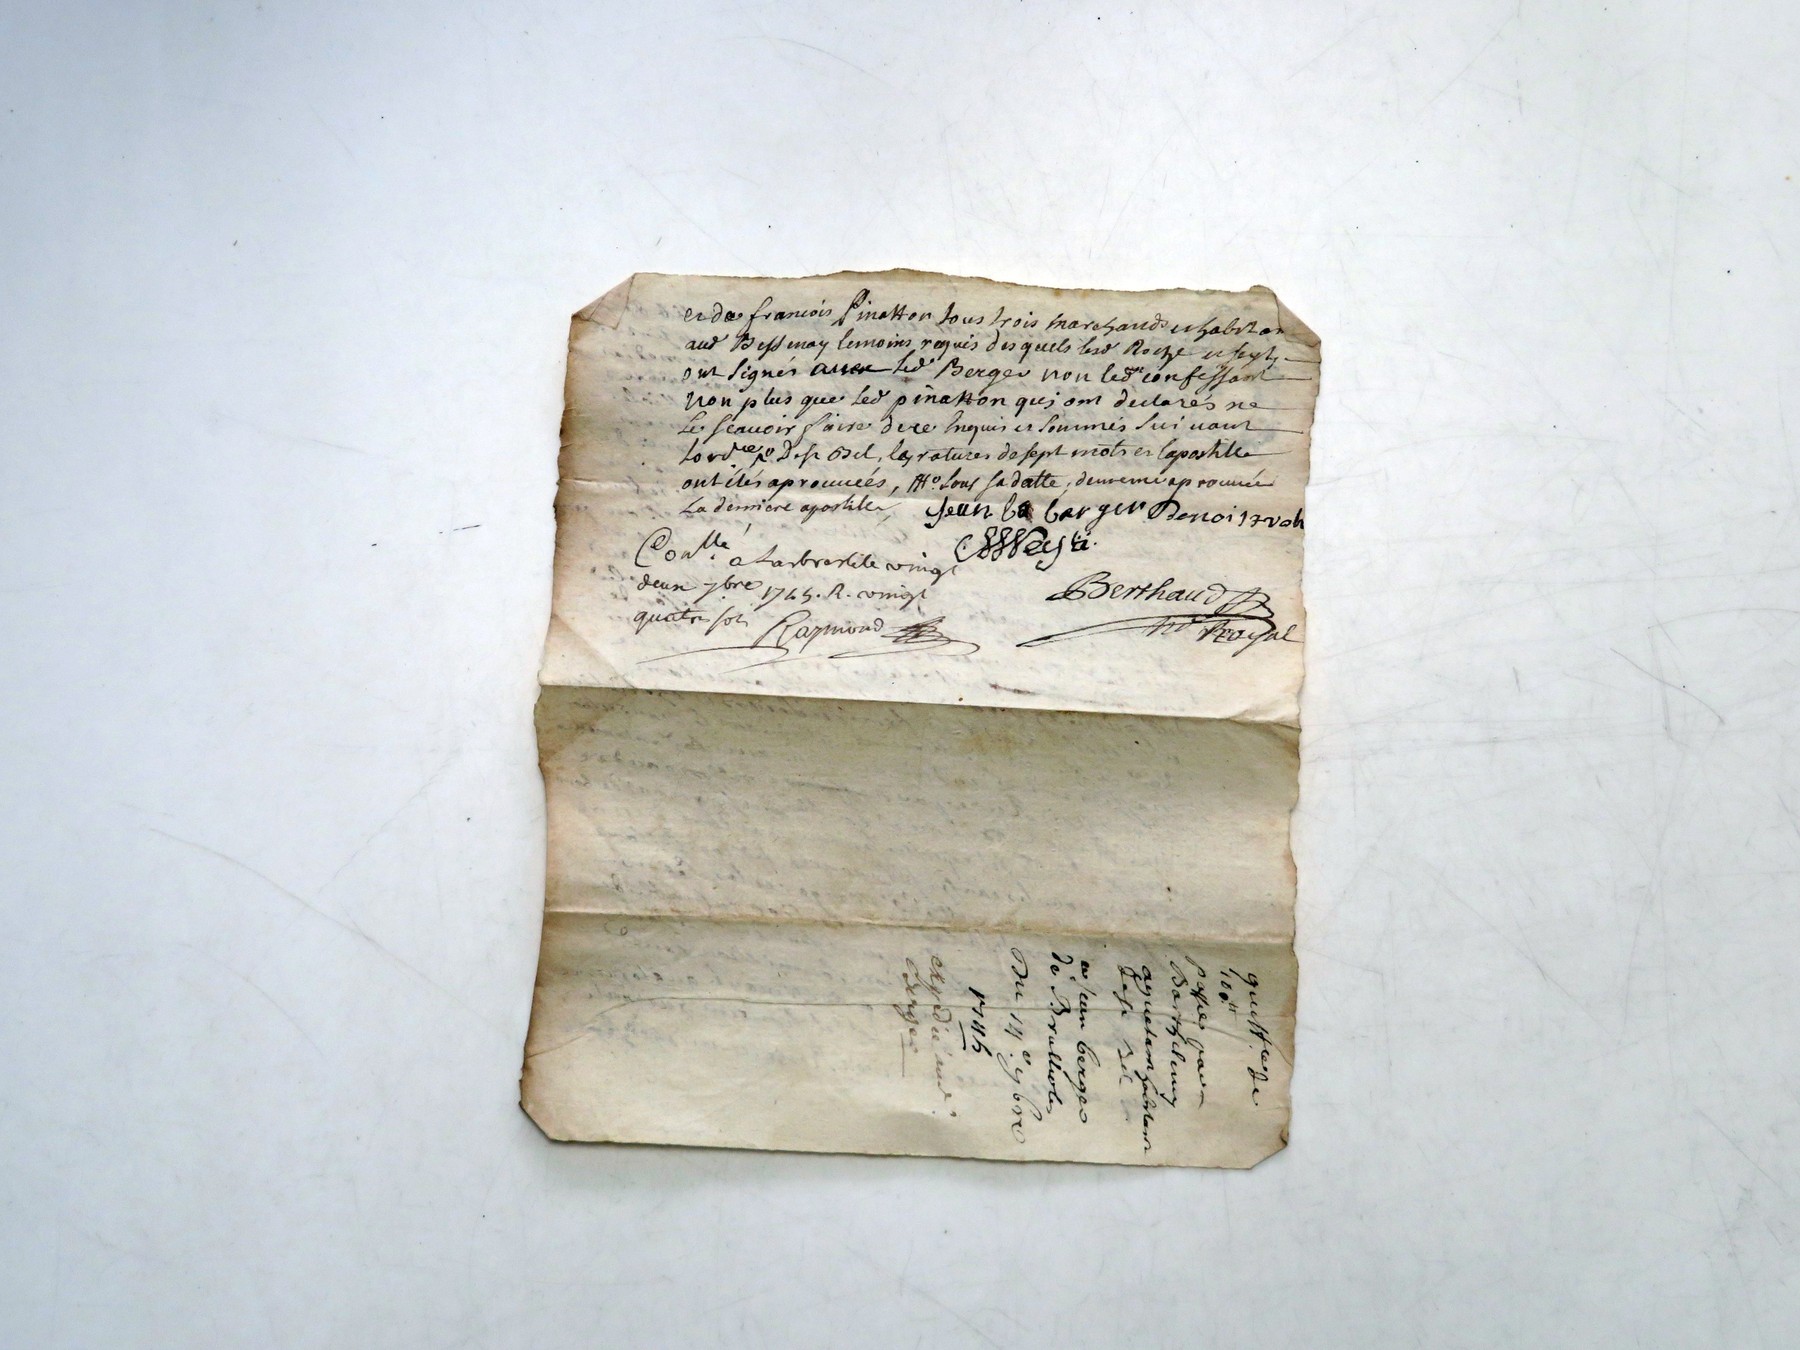 et de francois Pinatton tous trois marchands et habitan
aud Bessenay temoins requis desquels lesd Roche et
ont signés avec led Berger non led.t confessant
non plus que led pinatton qui ont declarés ne
le scauoir faire de ce Enquis et sommés suivant
lord.ce Bel, les ratures de sept mots et lapostille
ont étés aprouvées, sous sa datte,
La derniere apostille, jean berger Benoit roch
Con.llé a Larbresle le vingt
deux 7bre 1745. R. vingt
quatre sols Raymond
Berthaud
no.re Royal
quitt.ce de
100.tt
passée par
Barthelemy
habitant
a jean berger
de Brullioles
Du 14.e 7bre
1745
expedié aud.
Berger